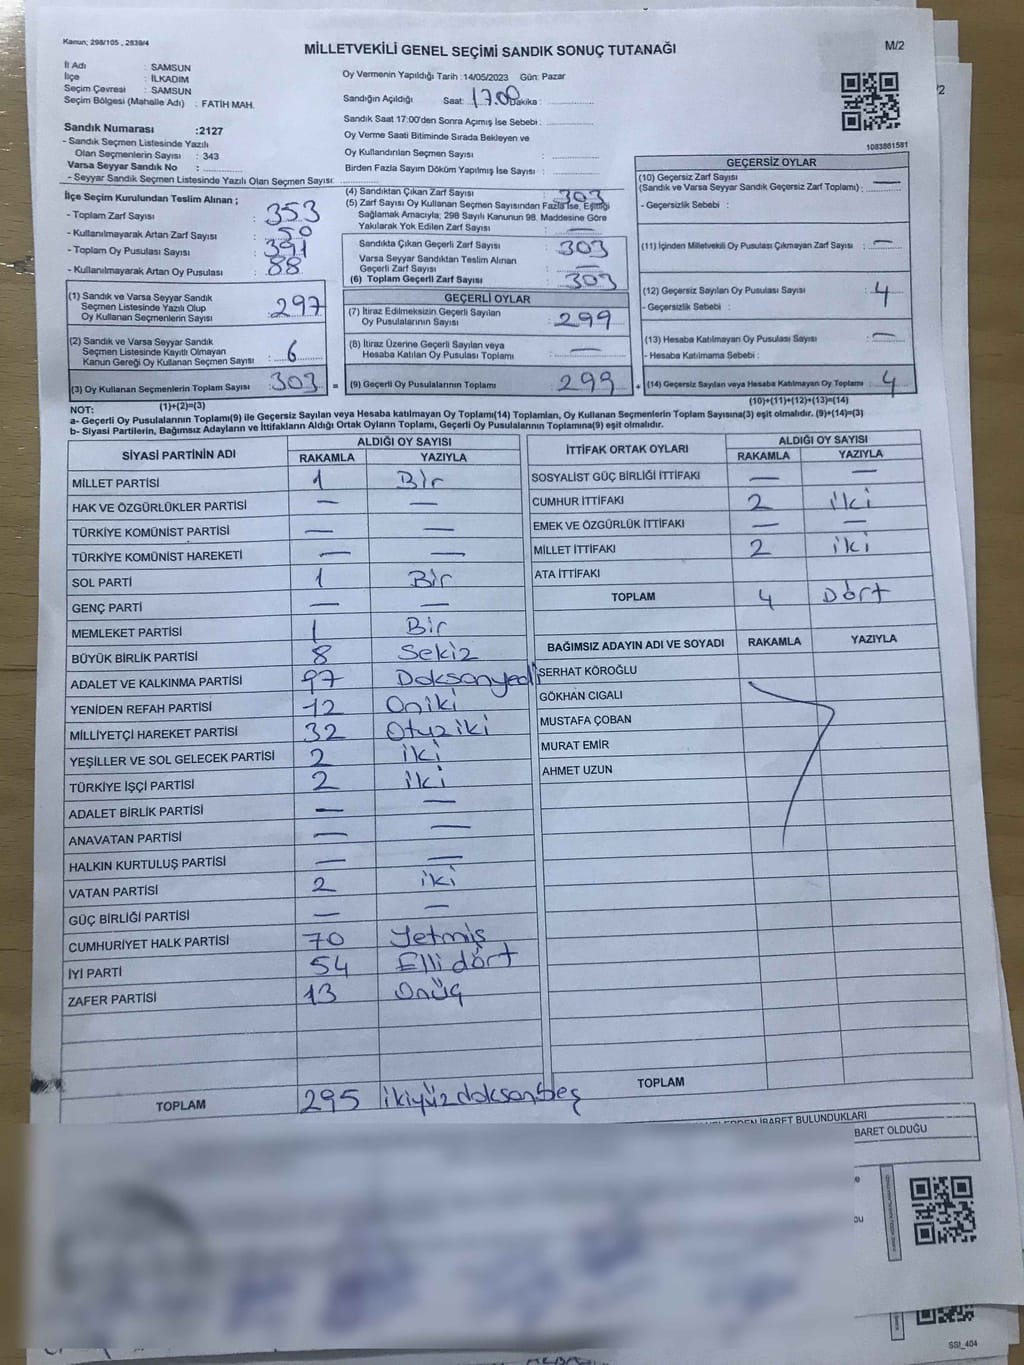 Kanun; 298/105 , 2839/4
MİLLETVEKİLİ GENEL SEÇİMİ SANDIK SONUÇ TUTANAĞI
M/2
İl Adı : SAMSUN
İlçe : İLKADIM
Seçim Çevresi : SAMSUN
Seçim Bölgesi (Mahalle Adı) : FATİH MAH.
Sandık Numarası :2127
- Sandık Seçmen Listesinde Yazılı
Olan Seçmenlerin Sayısı : 343
Varsa Seyyar Sandık No :
- Seyyar Sandık Seçmen Listesinde Yazılı Olan Seçmen Sayısı:
Oy Vermenin Yapıldığı Tarih :14/05/2023 Gün: Pazar
Sandığın Açıldığı Saat: 17.00 Dakika :
Sandık Saat 17:00'den Sonra Açılmış İse Sebebi :
Oy Verme Saati Bitiminde Sırada Bekleyen ve
Oy Kullandırılan Seçmen Sayısı :
Birden Fazla Sayım Döküm Yapılmış İse Sayısı :
1083861581
İlçe Seçim Kurulundan Teslim Alınan ;
- Toplam Zarf Sayısı : 353
- Kullanılmayarak Artan Zarf Sayısı : 50
- Toplam Oy Pusulası Sayısı : 391
- Kullanılmayarak Artan Oy Pusulası : 88
(1) Sandık ve Varsa Seyyar Sandık
Seçmen Listesinde Yazılı Olup
Oy Kullanan Seçmenlerin Sayısı : 297
(2) Sandık ve Varsa Seyyar Sandık
Seçmen Listesinde Kayıtlı Olmayan
Kanun Gereği Oy Kullanan Seçmen Sayısı : 6
(3) Oy Kullanan Seçmenlerin Toplam Sayısı : 303 =
(1)+(2)=(3)
(4) Sandıktan Çıkan Zarf Sayısı : 303
(5) Zarf Sayısı Oy Kullanan Seçmen Sayısından Fazla İse, Eşitliği
Sağlamak Amacıyla; 298 Sayılı Kanunun 98. Maddesine Göre
Yakılarak Yok Edilen Zarf Sayısı : —
Sandıkta Çıkan Geçerli Zarf Sayısı : 303
Varsa Seyyar Sandıktan Teslim Alınan
Geçerli Zarf Sayısı : —
(6) Toplam Geçerli Zarf Sayısı : 303
GEÇERLİ OYLAR
(7) İtiraz Edilmeksizin Geçerli Sayılan
Oy Pusulalarının Sayısı : 299
(8) İtiraz Üzerine Geçerli Sayılan veya
Hesaba Katılan Oy Pusulası Toplamı : —
(9) Geçerli Oy Pusulalarının Toplamı : 299 +
GEÇERSİZ OYLAR
(10) Geçersiz Zarf Sayısı
(Sandık ve Varsa Seyyar Sandık Geçersiz Zarf Toplamı) : —
- Geçersizlik Sebebi :
(11) İçinden Milletvekili Oy Pusulası Çıkmayan Zarf Sayısı : —
(12) Geçersiz Sayılan Oy Pusulası Sayısı : 4
- Geçersizlik Sebebi :
(13) Hesaba Katılmayan Oy Pusulası Sayısı : —
- Hesaba Katılmama Sebebi :
(14) Geçersiz Sayılan veya Hesaba Katılmayan Oy Toplamı : 4
(10)+(11)+(12)+(13)=(14)
NOT:
a- Geçerli Oy Pusulalarının Toplamı(9) ile Geçersiz Sayılan veya Hesaba katılmayan Oy Toplamı(14) Toplamları, Oy Kullanan Seçmenlerin Toplam Sayısına(3) eşit olmalıdır. (9)+(14)=(3)
b- Siyasi Partilerin, Bağımsız Adayların ve İttifakların Aldığı Ortak Oyların Toplamı, Geçerli Oy Pusulalarının Toplamına(9) eşit olmalıdır.
SİYASİ PARTİNİN ADI ALDIĞI OY SAYISI
RAKAMLA YAZIYLA
MİLLET PARTİSİ 1 Bir
HAK VE ÖZGÜRLÜKLER PARTİSİ — —
TÜRKİYE KOMÜNİST PARTİSİ — —
TÜRKİYE KOMÜNİST HAREKETİ — —
SOL PARTİ 1 Bir
GENÇ PARTİ — —
MEMLEKET PARTİSİ 1 Bir
BÜYÜK BİRLİK PARTİSİ 8 Sekiz
ADALET VE KALKINMA PARTİSİ 97 Doksanyedi
YENİDEN REFAH PARTİSİ 12 Oniki
MİLLİYETÇİ HAREKET PARTİSİ 32 Otuziki
YEŞİLLER VE SOL GELECEK PARTİSİ 2 iki
TÜRKİYE İŞÇİ PARTİSİ 2 iki
ADALET BİRLİK PARTİSİ — —
ANAVATAN PARTİSİ — —
HALKIN KURTULUŞ PARTİSİ — —
VATAN PARTİSİ 2 iki
GÜÇ BİRLİĞİ PARTİSİ — —
CUMHURİYET HALK PARTİSİ 70 Yetmiş
İYİ PARTİ 54 Elli dört
ZAFER PARTİSİ 13 Onüç
TOPLAM 295 ikiyüzdoksanbeş
İTTİFAK ORTAK OYLARI ALDIĞI OY SAYISI
RAKAMLA YAZIYLA
SOSYALİST GÜÇ BİRLİĞİ İTTİFAKI — —
CUMHUR İTTİFAKI 2 iki
EMEK VE ÖZGÜRLÜK İTTİFAKI — —
MİLLET İTTİFAKI 2 iki
ATA İTTİFAKI
TOPLAM 4 Dört
BAĞIMSIZ ADAYIN ADI VE SOYADI RAKAMLA YAZIYLA
SERHAT KÖROĞLU
GÖKHAN CIGALI
MUSTAFA ÇOBAN
MURAT EMİR
AHMET UZUN
TOPLAM
İBARET BULUNDUKLARI
BARET OLDUĞU
SSI_404